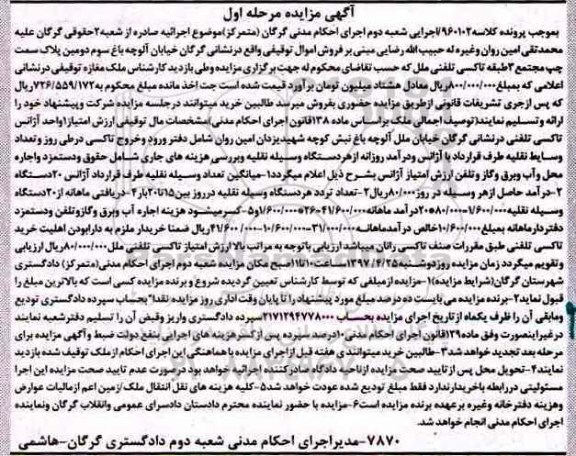 آگهی مزایده مرحله اول
بموجب پرونده کلاسه ۹۶۰۱۰۲/اجرایی شعبه دوم اجرای احکام مدنی گرگان (متمرکز)موضوع اجرائیه صادره از شعبه ۲حقوقی گرگان علیه
محمدتقی امین روان وغیره له حبیب الله رضایی مبنی بر فروش اموال توقیفی واقع درنشانی گرگان خیابان آلوچه باغ سوم دومین پلاک سمت
چپ مجتمع ۳طبقه تاکسی تلفنی ملل که حسب تقاضای محکوم له جهت برگزاری مزایده وطی بازدید کارشناس ملک مغازه توقیفی درنشانی
اعلامی که بمبلغ ۸۰۰/۰۰۰/۰۰۰ریال معادل هشتاد میلیون تومان برآورد قیمت شده است جت اخذ مانده مبلغ محکوم به ۷۲۶/۵۵۹/۱۷۲ریال
که پس ازجری تشریفات قانونی ازطریق مزایده حضوری بفروش میرسد طالبین خرید میتوانند درجلسه مزایده شرکت وپیشنهاد خود را
ارائه وتسلیم نمایند(توصیف اجمالی ملک براساس ماده ۱۳۸قانون اجرای احکام مدنی)مشخصات مال توقیفی ارزش امتیاز۱واحد آژانس
تاکسی تلفنی درنشانی گرگان خیابان ملل آلوچه باغ نبش کوچه شهیدیزدان امین روان شامل دفتر ورود وخروج تاکسی درطی روز وتعداد
وسایط نقلیه طرف قرارداد با آژانس ودرآمد روزانه ازهردستگاه وسیله نقلیه وبررسی هزینه های جاری شامل حقوق ودستمزد واجاره
محل وآب وبرق وگاز وتلفن ارزش امتیاز آژانس بشرح ذیل اعلام میگردد۱-میانگین تعداد وسیله نقلیه طرف قرارداد آژانس ۲۰دستگاه
۲-درآمد حاصل ازهر وسیله در روز ۸۰/۰۰۰ریال۲-تعداد تردد هردستگاه وسیله نقلیه درروز بین۱۵تا۲۰بار۴-دریافتی ماهانه از۲۰دستگاه
وسیله نقلیه ۱/۶۰۰/۰۰۰ ۲۰*۸۰/۰۰۰درآمد ماهانه ۴۱/۶۰۰/۰۰۰ ۲۶*۱/۶۰۰/۰۰۰و۵-کسرمیشود هزینه اجاره آب وبرق وگازوتلفن ودستمزد
دفتردارماهانه بمبلغ ۱۰/۶۰۰/۰۰۰خالص درآمدماهانه ۳۱/۰۰۰/۰۰۰ ۱۰/۶۰۰/۰۰۰-۴۱/۶۰۰/۰۰۰ریال ضمنا خریدار ملزم به دارابودن اهلیت خرید
تاکسی تلفنی طبق مقررات صنف تاکسی رانان میباشد ارزیابی باتوجه به مراتب بالا ارزش امتیاز تاکسی تلفنی ملل ۸۰۰/۰۰۰/۰۰۰ریال ارزیابی
وتقویم میگردد زمان مزایده روزدوشنبه ۱۳۹۷/۴/۲۵ساعت۱۰تا۱۱صبح مکان مزایده شعبه دوم اجرای احکام مدنی(متمرکز) دادگستری
شهرستان گرگان(شرایط مزایده)۱-مزایده ازمبلغی که توسط کارشناس تعیین گردیده شروع و برنده مزایده کسی است که بالاترین مبلغ را
قبول نماید۲-برنده مزایده می بایست ده درصد مبلغ مورد پیشنهاد را تا پایان وقت اداری روز مزایده نقدا" بحساب سپرده دادگستری تودیع
ومابقی آن را ظرف یکماه ازتاریخ اجرای مزایده بحساب ۲۱۷۱۲۹۴۷۷۸۰۰۰سپرده دادگستری واریز وقبض آن را تسلیم دفترشعبه نمایند
درغیراینصورت وفق ماده ۱۲۹قانون اجرای احکام مدنی ۱۰درصد سپرده پس از کسرهزینه های اجرایی بنفع دولت ضبط وآگهی مزایده برای
مرحله بعد تجدید خواهد شد۳-طالبین خرید میتوانندی هفته قبل ازاجرای مزایده با هماهنگی این اجرای احکام ازملک توقیف شده بازدید
نمایند۴-تحویل محل پس از تایید صحت مزایده ازناحیه دادگاه صادرکننده اجرائیه خواهد بود درصورت عدم تایید صحت مزایده این اجرا
مسئولیتی دررابطه باخریدارندارد فقط مبلغ تودیع شده عودت خواهد شد۵-کلیه هزینه های نقل انتقال ملک/زمین اعم ازمالیات عوارض
وهزینه دفترخانه وغیره برعهده برنده مزایده است۶-مزایده با حضور نماینده محترم دادستان دادسرای عمومی وانقلاب گرگان ونماینده
اجرای احکام مدنی انجام خواهد شد.
۷۸۷۰-مدیراجرای احکام مدنی شعبه دوم دادگستری گرگان-هاشمی